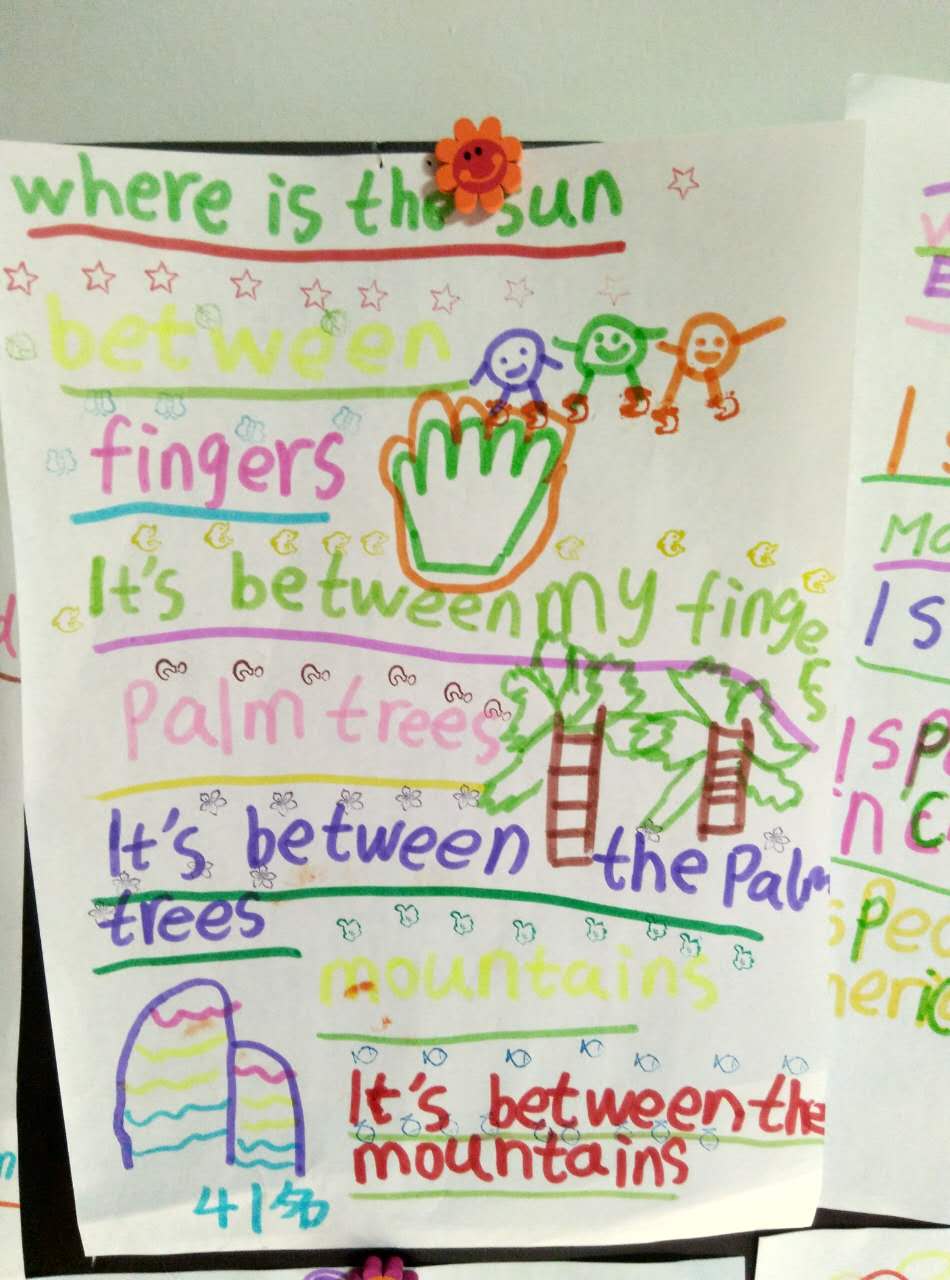 where is the sun
between
fingers
It's between my fingers
Palm trees
It's between the Palm
trees
mountains
It's between the
mountains